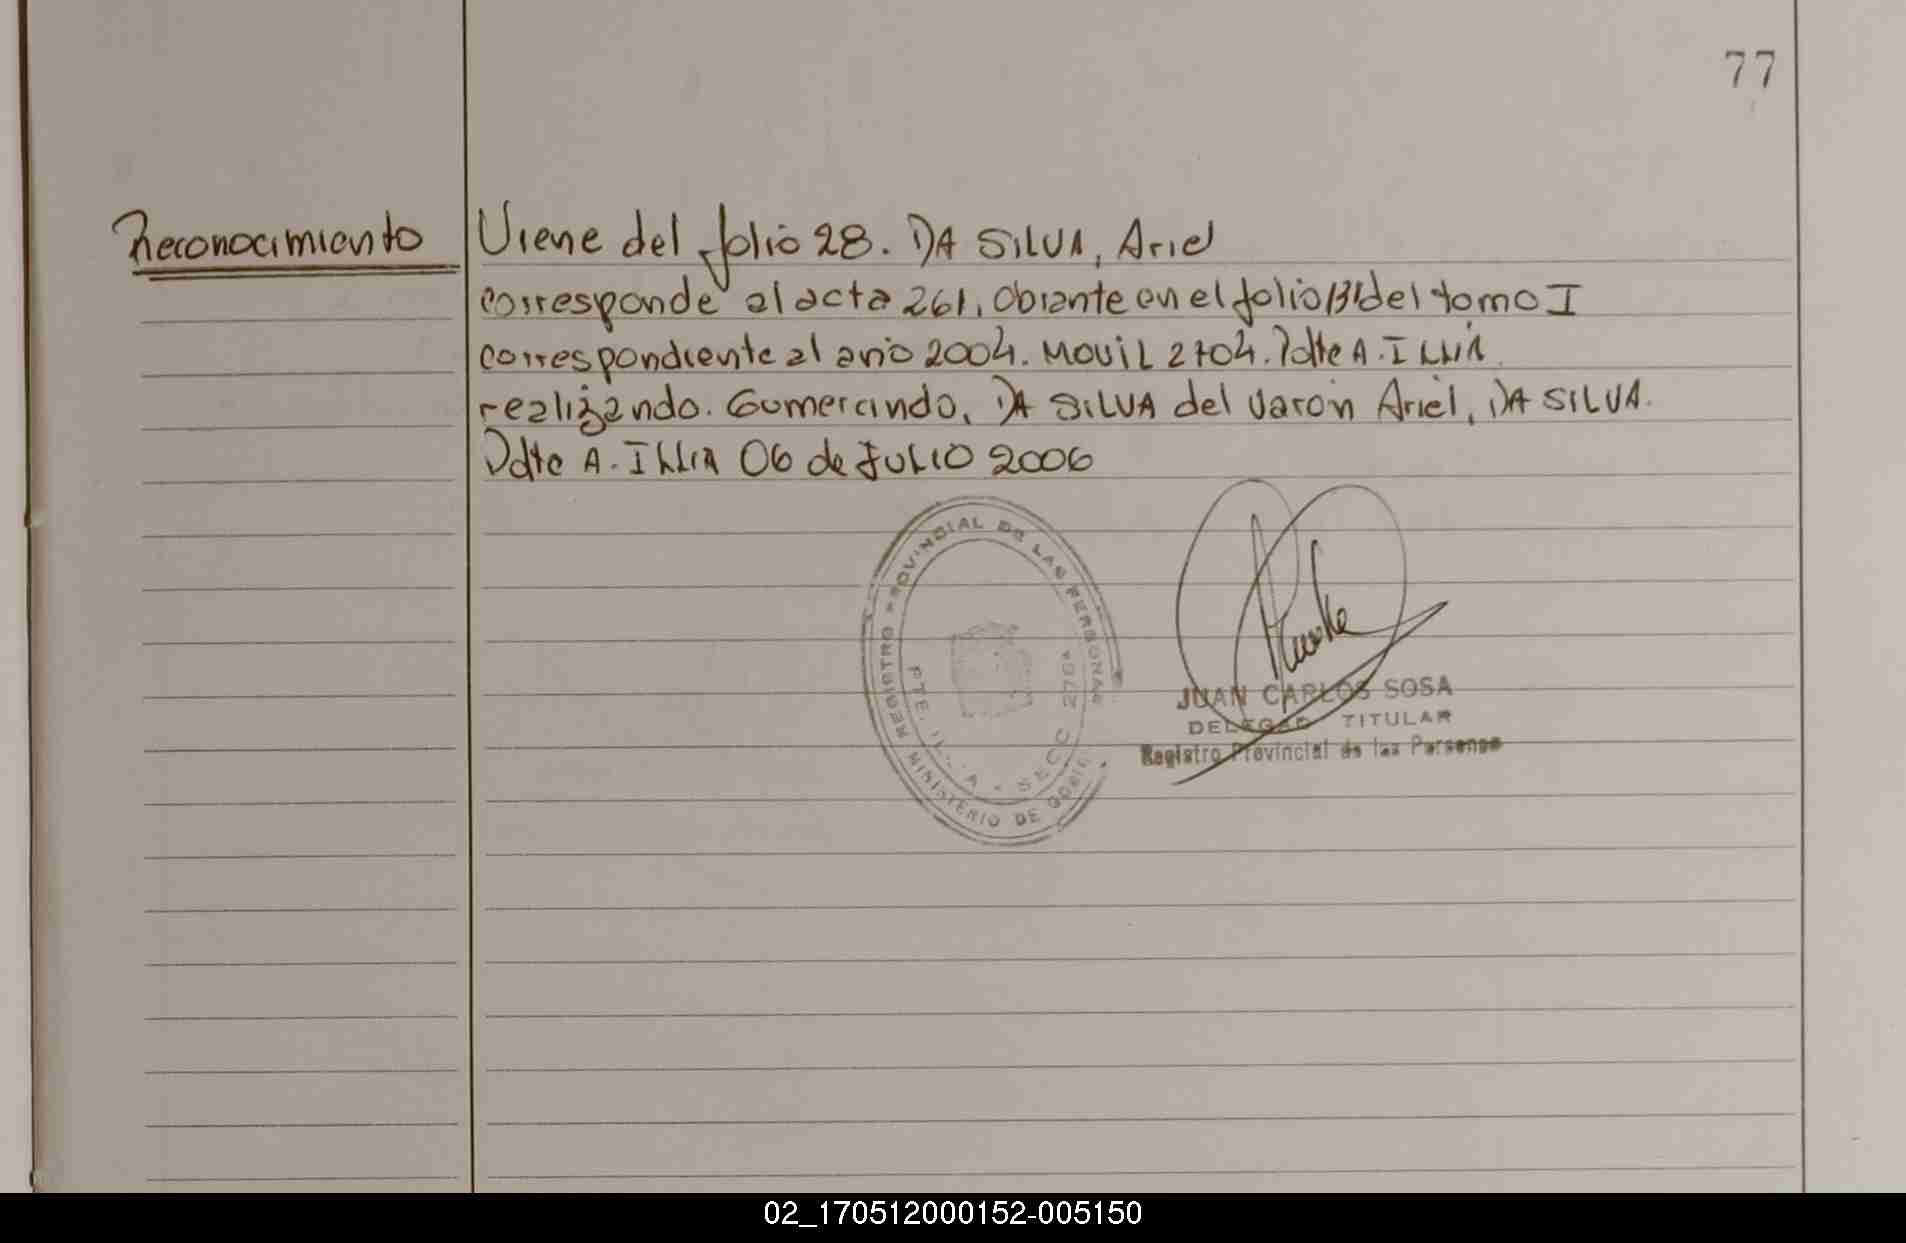 77
Reconocimiento
Viene del folio 28. DA SILVA, Ariel
corresponde al acta 261, Obrante en el folio 131 del tomo I
correspondiente al año 2004. MOVIL 2704. Pdte A. ILLIA
realizando. Gumercindo, DA SILVA del varón Ariel, DA SILVA.
Pdte A. ILLIA 06 de JULIO 2006
REGISTRO PROVINCIAL DE LAS PERSONAS
MINISTERIO DE
PTE. ILLIA - SECC 2704
JUAN CARLOS SOSA
DELEGADO TITULAR
Registro Provincial de las Personas
02_170512000152-005150